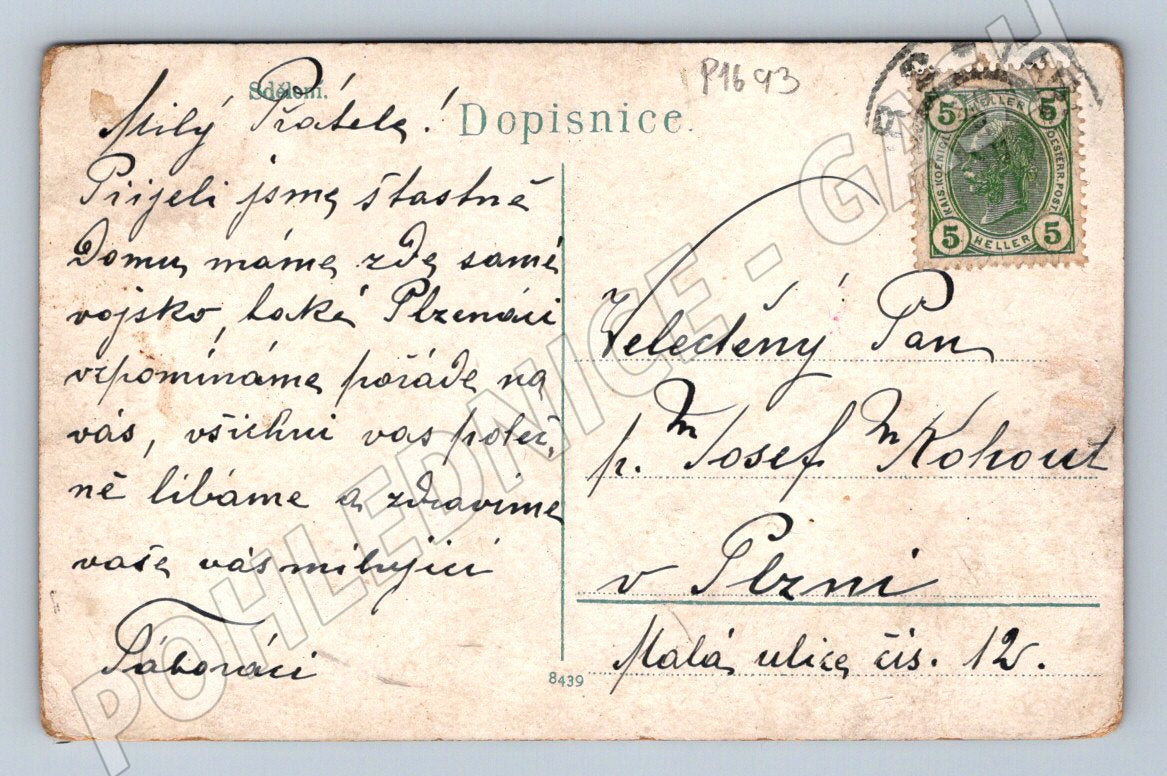 P1693
Sdělení.
Dopisnice.
Milý Přátelé!
Přijeli jsme štastně
Domu, máme zde samé
vojsko, také Plzenáci
vzpomínáme pořáde na
vás, všichni vas poleč,
ně líbáme a zdravime
vaše vás milujíci
Táboráci
5 HELLER 5
KAIS. KOENIGL. OESTERR. POST
5 HELLER 5
Velectěný Pan
p. Josef Kohout
v Plzni
Malá ulice čis. 12.
8439
POHLEDNICE -